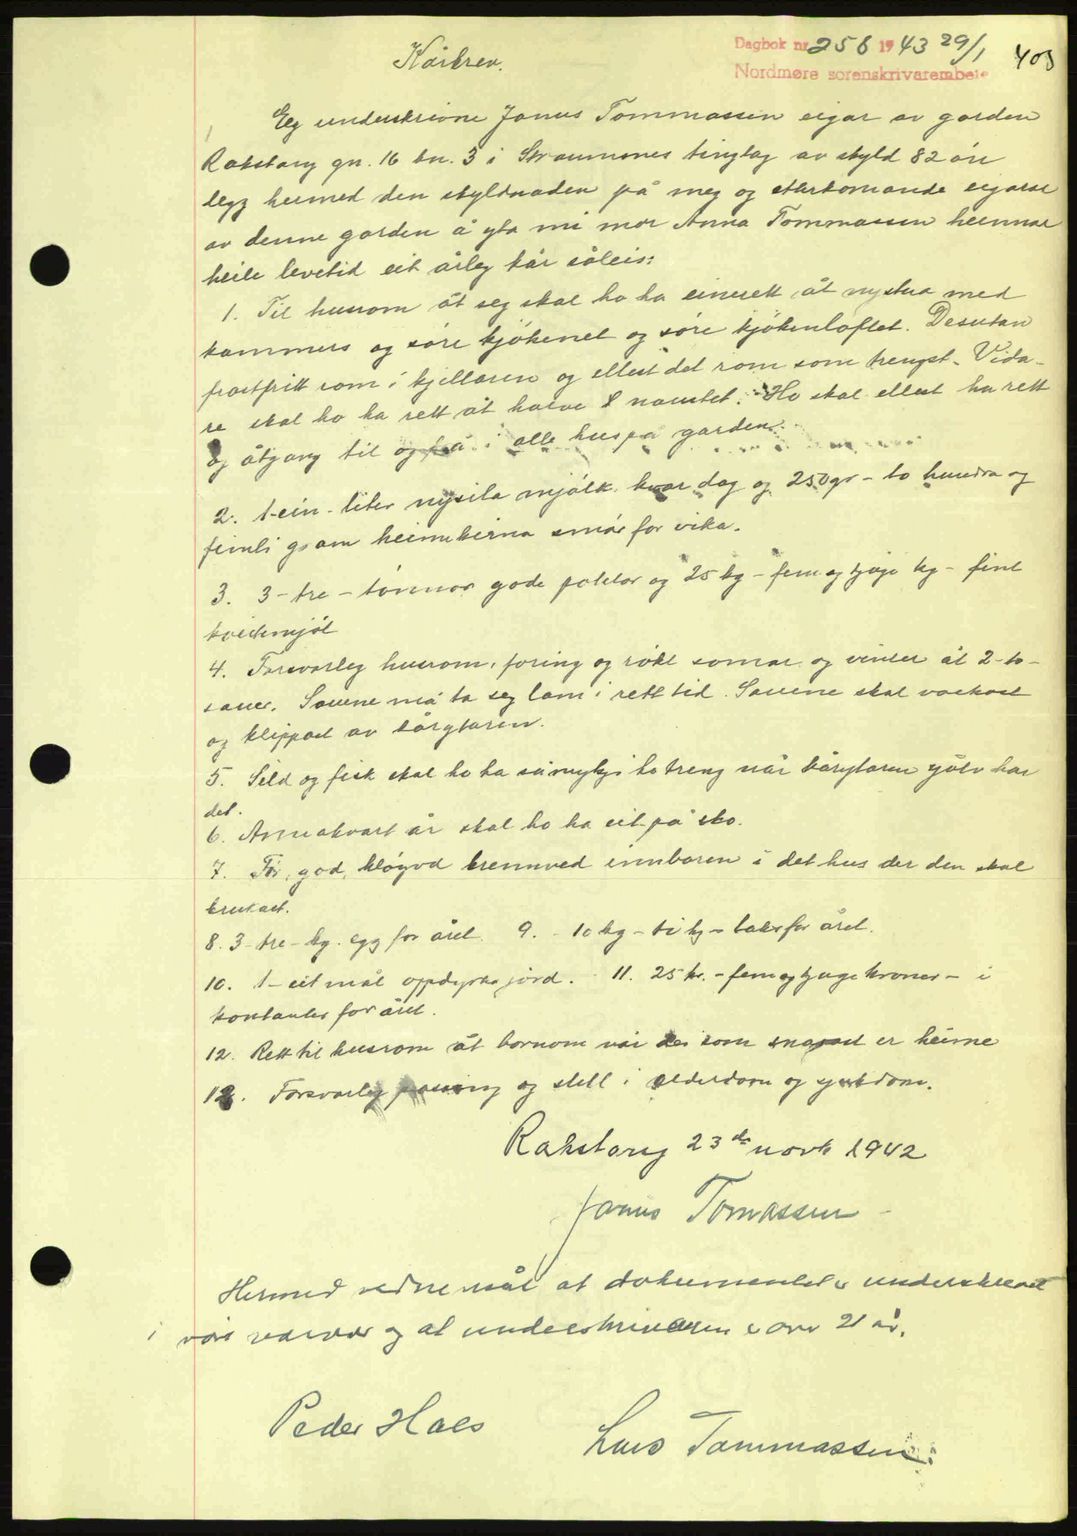 Dagbok nr. 256 1943 29/1
403
Nordmøre sorenskrivarembete
Kårbrev.
Eg underskrivne Janus Tommassen eigar av garden
Rakstang gn. 16 bn. 3 i Straumsnes tinglag av skyld 82 øre
legg hermed den skyldnaden på meg og etterkomande eigarar
av denne garden å yta mi mor Anna Tommassen hennar
heile levetid eit årleg kår såleis:
1. Til husrom åt seg skal ho ha einerett åt nystua med
kammers og søre kjøkenet og søre kjøkenloftet. Desutan
frostfritt rom i kjellaren og ellest det rom som trengst. Vida-
re skal ho ha rett åt halve naustet. Ho skal ellest ha rett
og åtgang til og frå i alle hus på garden.
2. 1-ein-liter nysila mjølk kvar dag og 250 gr - to hundra og
femti gram heimkinna smør for vika.
3. 3-tre-tønnor gode poteter og 25 kg - fem og tjuge kg - fint
kveitemjøl
4. Forsvarleg husrom, foring og røkt somar og vinter åt 2-to-
sauer. Sauene må ta seg lam i rett tid. Sauene skal vaskast
og klippast av kårytaren.
5. Sild og fisk skal ho ha so mykje ho treng når kårytaren sjølv har
det.
6. Annakvart år skal ho ha eit på sko.
7. Tør, god, kløyvd brennved innboren i det hus der den skal
brukast.
8. 3-tre-kg. egg for året. 9. 10 kg - ti kg - for året.
10. 1-eit mål oppdyrka jord. 11. 25 kr. - fem og tjuge kroner - i
kontanter for året.
12. Rett til husrom åt bornom når dei som er heime
13. Forsvarleg passing og stell i alderdom og sjukdom.
Rakstang 23de novb 1942
Janus Tomassen
Hermed vedne mål at dokumentet er underskrevet
i vårt nærvær og at underskriveren er over 21 år.
Peder Hals
Lars Tommassen